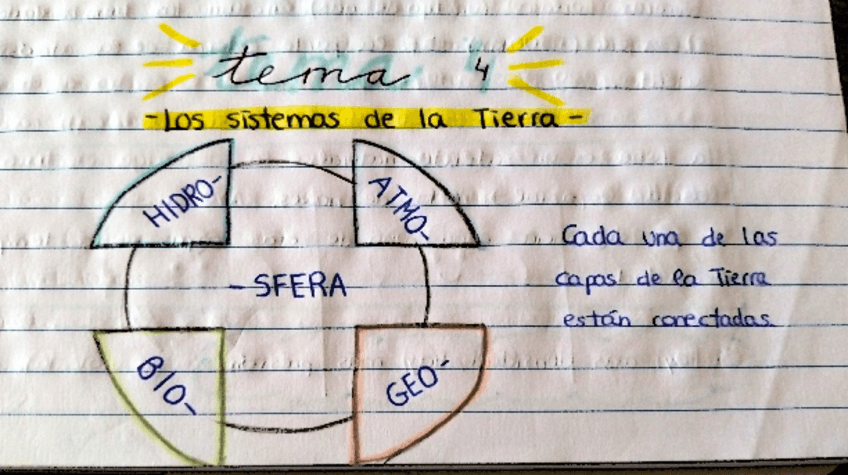 tema 4
-Los sistemas de la Tierra-
HIDRO-
ATMO-
-SFERA
Cada una de las
capas de la Tierra
están conectadas.
BIO-
GEO-